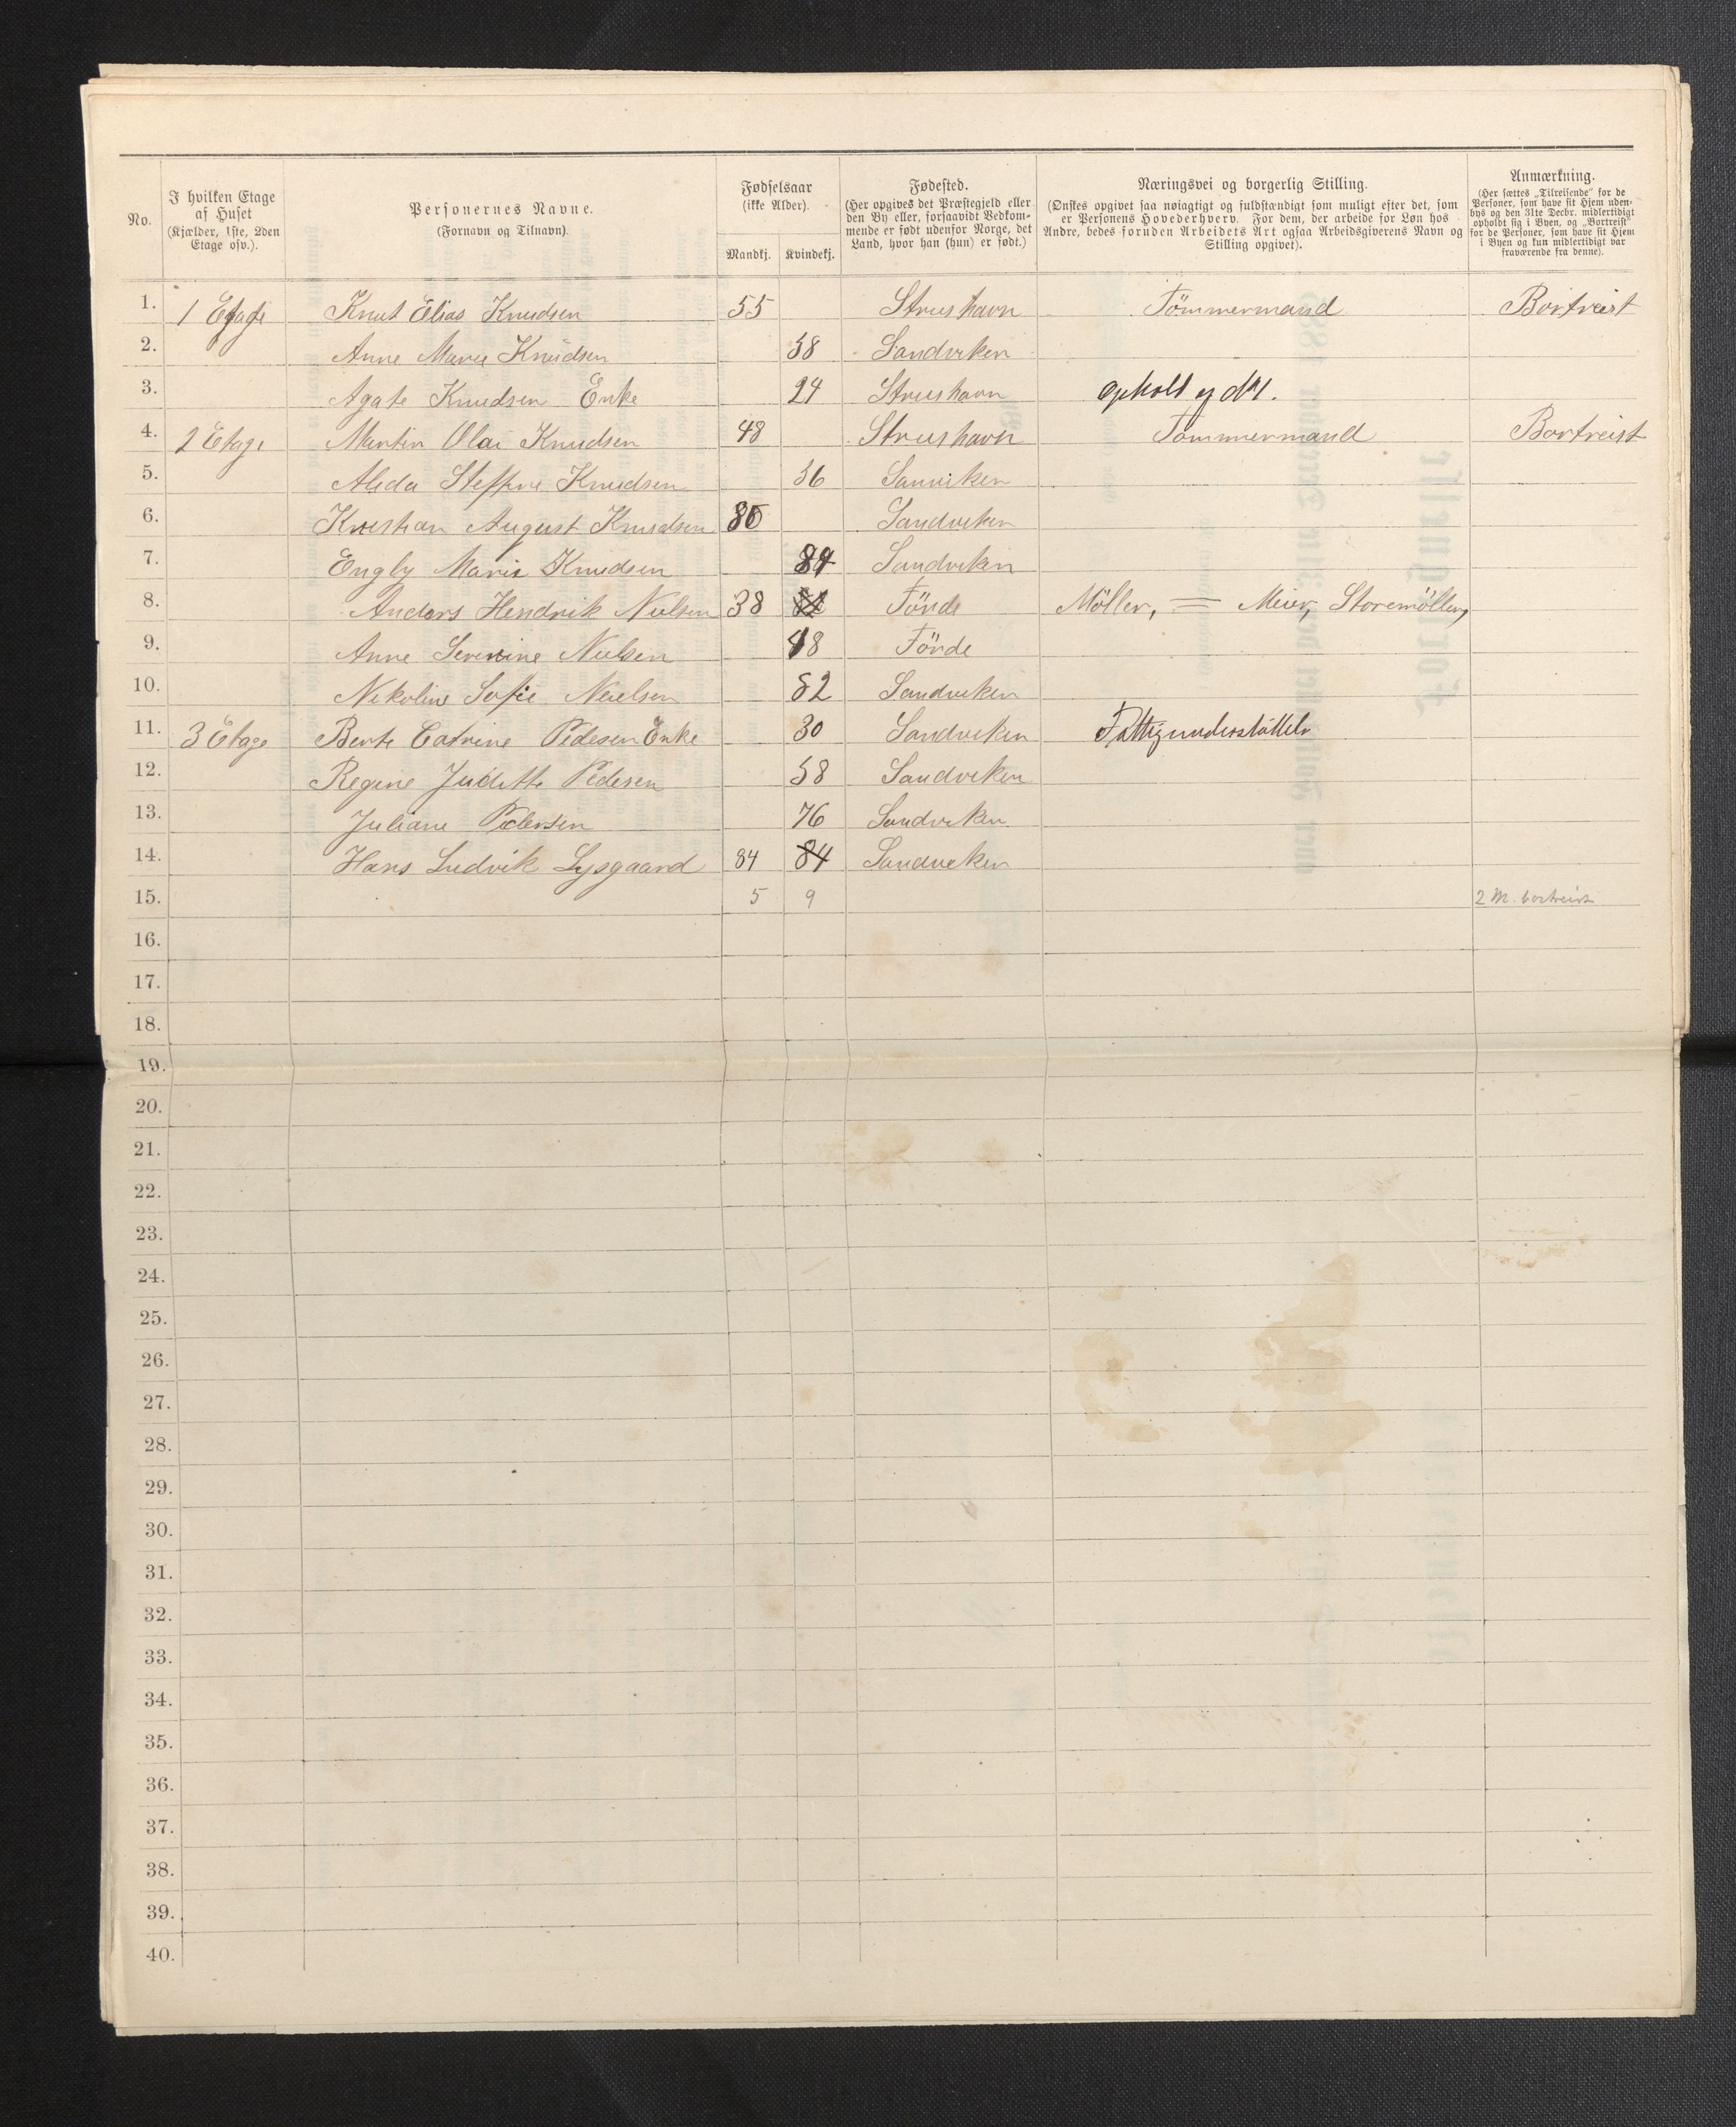 No.
I hvilken Etage
af Huset
(Kjælder, 1ste, 2den
Etage osv.).
Personernes Navne.
(Fornavn og Tilnavn)
Fødselsaar
(ikke Alder).
Mandkj. Kvindekj.
Fødested.
(Her opgives det Præstegjeld eller
den By eller, forsaavidt Vedkom-
mende er født udenfor Norge, det
Land, hvor han (hun) er født.)
Næringsvei og borgerlig Stilling.
(Ønskes opgivet saa nøiagtigt og fuldstændigt som muligt efter det, som
er Personens Hovederhverv. For dem, der arbeide for Løn hos
Andre, bedes foruden Arbeidets Art ogsaa Arbeidsgiverens Navn og
Stilling opgivet).
Anmærkning.
(Her sættes „Tilreisende" for de
Personer, som have sit Hjem uden-
bys og den 31te Decbr. midlertidigt
opholdt sig i Byen, og „Bortreist"
for de Personer, som have sit Hjem
i Byen og kun midlertidigt var
fraværende fra denne).
1. 1 Etage Knut Elias Knudsen 55 Strushavn Tömmermand Bortreist
2. Anne Marie Knudsen 58 Sandviken
3. Agate Knudsen Enke 24 Strushavn
4. 2 Etage Martin Olai Knudsen 48 Strushavn Tömmermand Bortreist
5. Alida Steffine Knudsen 56 Sanviken
6. Kristian August Knudsen 80 Sandviken
7. Engly Marie Knudsen 84 Sandviken
8. Anders Hendrik Nielsen 38 Förde Möller, = Meier, Storemöllen,
9. Anne Severine Nielsen 48 Förde
10. Nikoline Sofie Neielsen 82 Sandviken
11. 3 Etage Berte Catrine Pedesen Enke 30 Sandviken Fattigunderstöttelse
12. Regine Juditte Pedesen 58 Sandviken
13. Juliane Pedersen 76 Sandviken
14. Hans Ludvik Lysgaard 84 84 Sandviken
15. 5 9 2 M. bortreist
16.
17.
18.
19.
20.
21.
22.
23.
24.
25.
26.
27.
28.
29.
30.
31.
32.
33.
34.
35.
36.
37.
38.
39.
40.